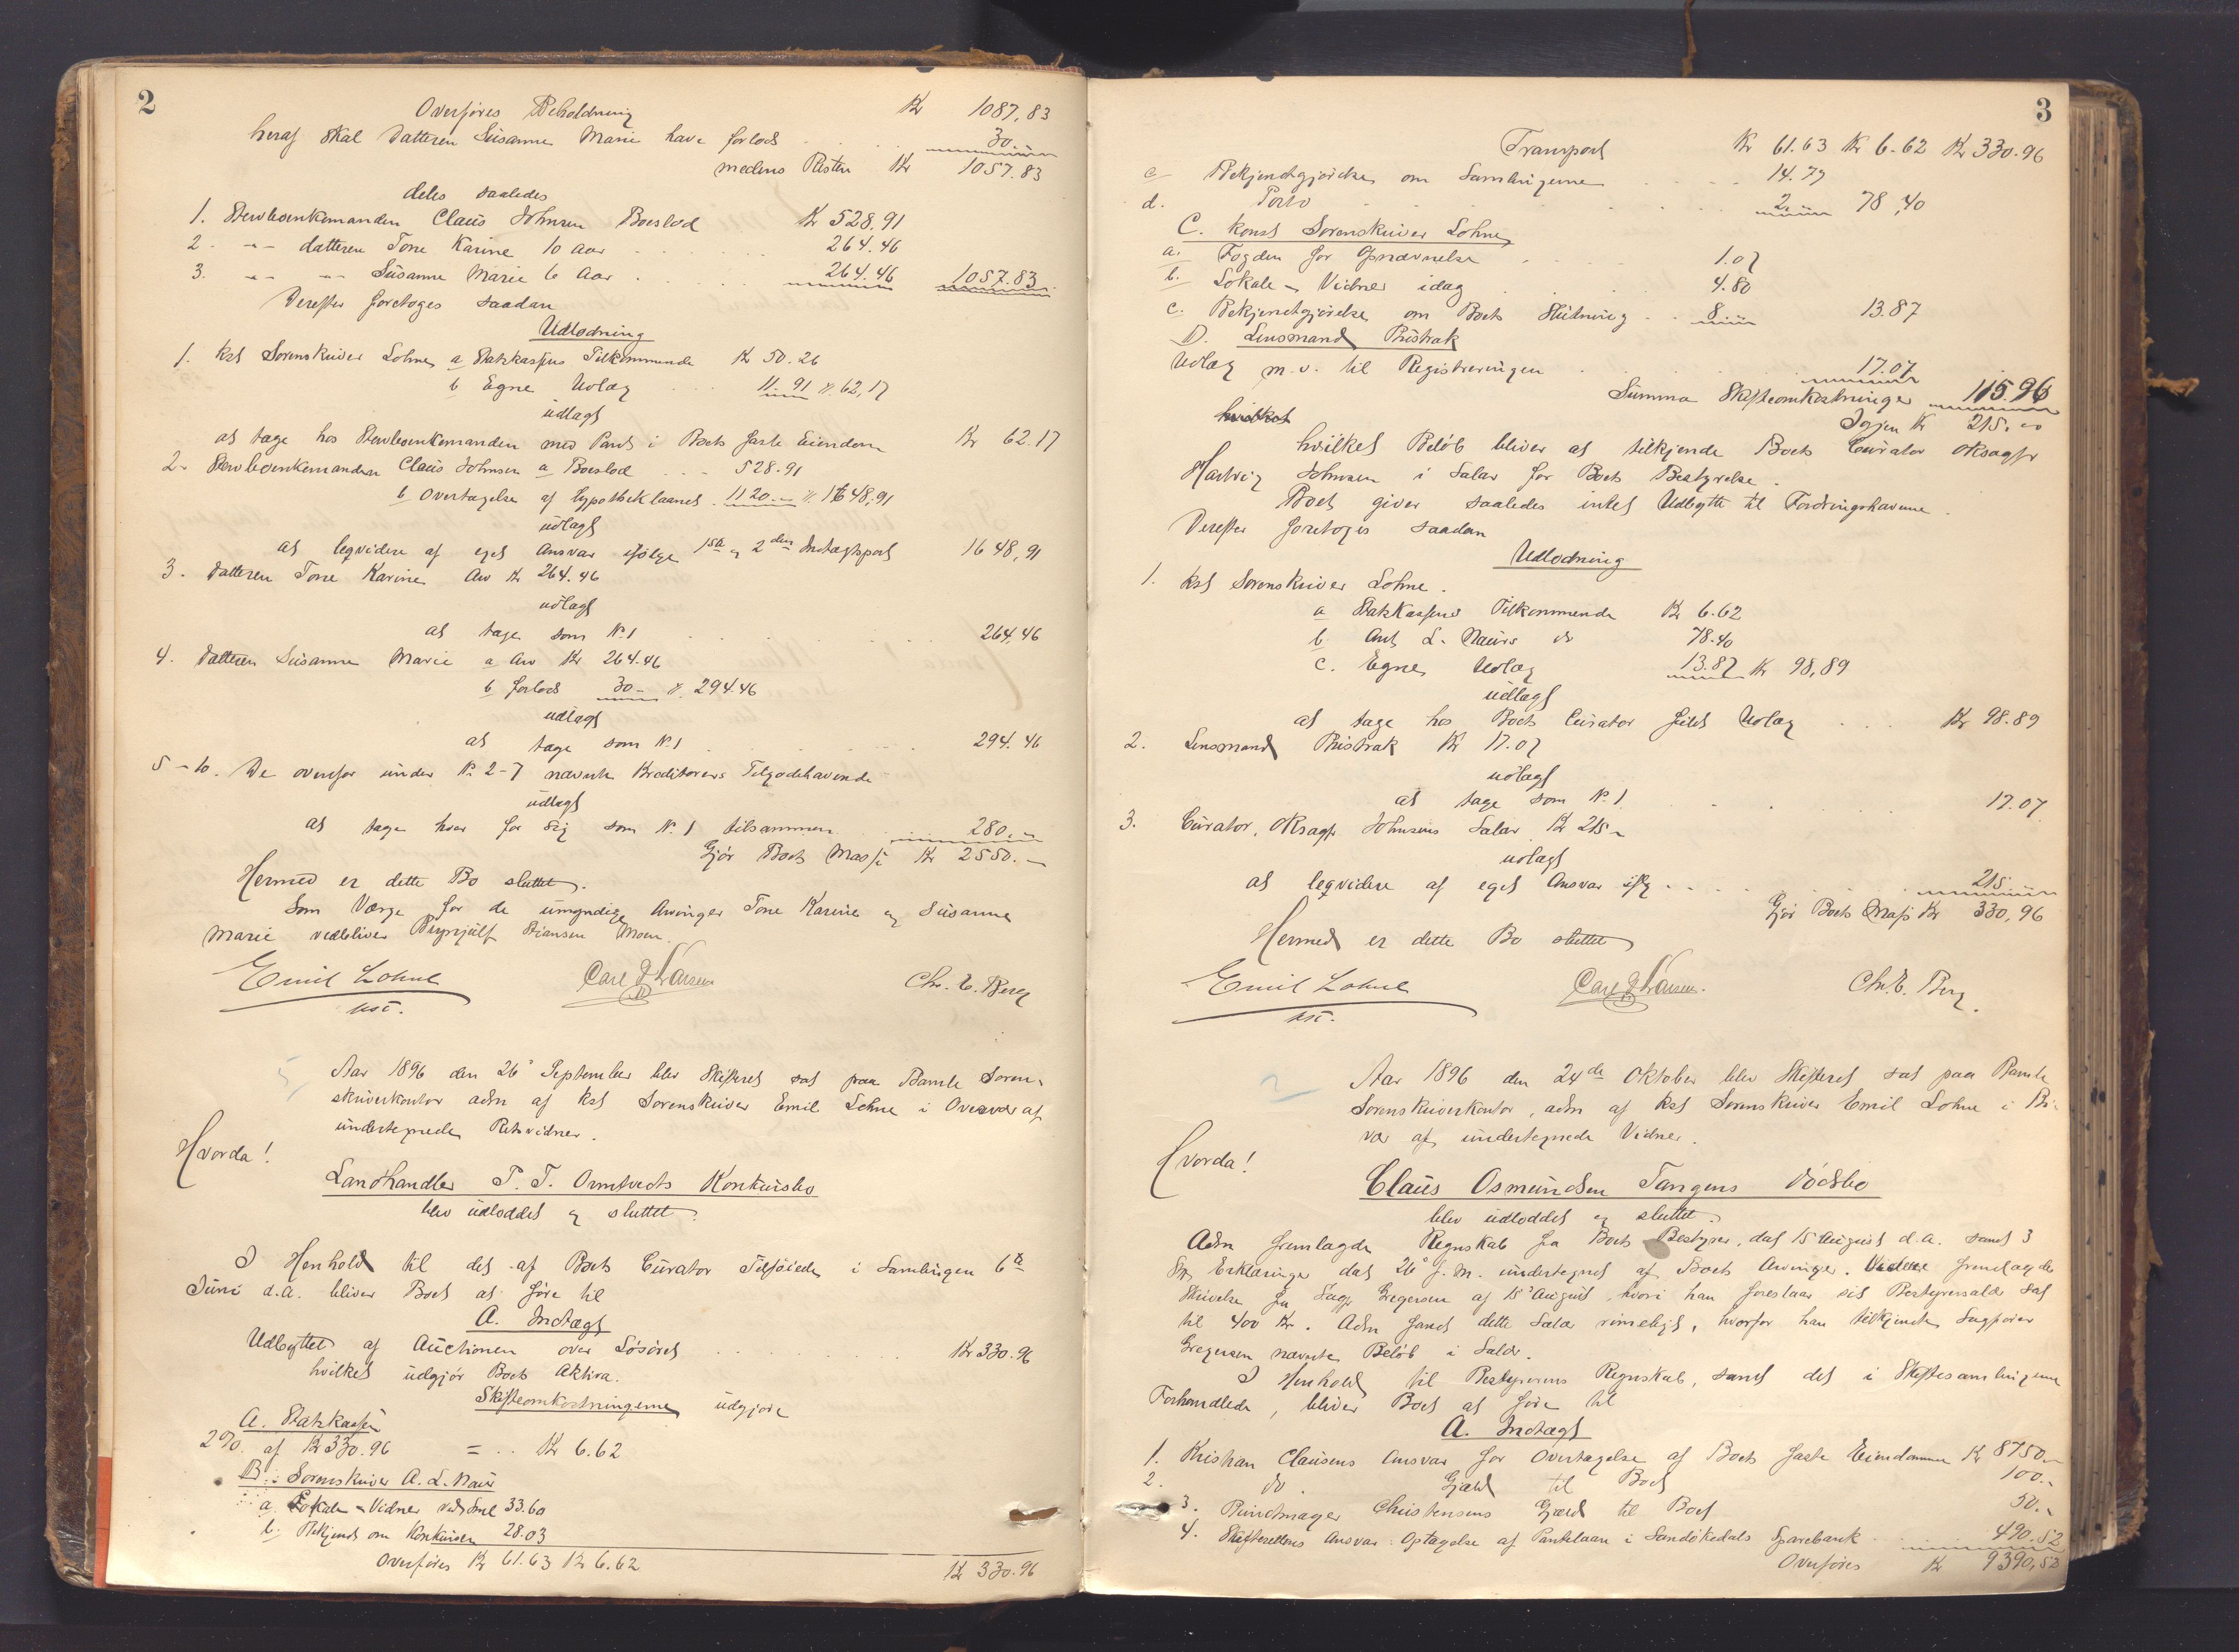 2
Overføres Beholdning Kr 1087,83
heraf skal datteren Susanne Marie have forlods 30.-
medens Resten Kr 1057.83
deles saaledes
1. Stervboenkemanden Claus Johnsen Boeslod Kr 528.91
2. -"- datteren Tone Karine 10 Aar 264.46
3. -"- -"- Susanne Marie 6 Aar 264.46 1057.83
Derefter foretoges saadan
Udlodning
1. kst Sorenskriver Lohne, a Statskassens Tilkommende Kr 50.26
b Egne Udlæg 11.91 62,17
udlagt
at tage hos Stervboenkemanden med Pant i Boets faste Eiendom Kr 62.17
2. Stervboenkemanden Claus Johnsen a Boeslod 528.91
b Overtagelse af Hypotheklaanet 1120.- 1648,91
udlagt
at leqvidere af eget Ansvar ifølge 1ste og 2den Indtægtspost 1648,91
3. datteren Tone Karine Arv Kr 264.46
udlagt
at tage som No 1 264,46
4. datteren Susanne Marie a Arv Kr 264.46
b forlods 30 - 294.46
udlagt
at tage som No 1 294.46
5-10. De ovenfor under No 2-7 nævnte Kreditorers Tilgodehavende
udlagt
at tage hver for sig som No 1 tilsammen 280.-
Gjør Boets Masse Kr 2550.-
Hermed er dette Bo sluttet.
Som Værge for de umyndige Arvinger Tone Karine og Susanne
Marie vedbliver Brynjulf Stiansen Moen.
Emil Lohne Carl J. Larsen Chr. C. Berg
kst.
Aar 1896 den 26' September blev Skifteret sat paa Bamle Soren-
skriverkontor adm af kst Sorenskriver Emil Lohne i Overvær af
undertegnede Retsvidner.
Hvorda!
Landhandler T. T. Ormtvedts Konkursbo
blev udloddet og sluttet.
I Henhold til det af Boets Curator Tilføiede i Samlingen 6te
Juni d.A. bliver Boet at føre til
A. Indtægt
Udbyttet af Auctionen over Løsøret Kr 330.96
hvilket udgjør Boets Aktiva.
Skifteomkostningerne udgjøre
A. Statskassen
2%. af Kr 330.96 = Kr 6.62
B. Sorenskriver A. L. Naur
a. Lokale & Vidner ved 33.60
b. Bekjendt om Konkursen 28.03
Overføres Kr 61.63 Kr 6.62 Kr 330.96
3
Transport Kr 61.63 Kr 6.62 Kr 330.96
c Bekjendtgjørelse om Samlingerne 14.77
d. Porto 2.- 78,40
C. konst Sorenskriver Lohne,
a. Fogden for Opnævnelse 1.07
b. Lokale & Vidner idag 4.80
c. Bekjendtgjørelse om Boets Slutning 8.- 13.87
D. Lensmand Ristrak
Udlæg m.v. til Registreringen 17.07
Summa Skifteomkostninger 115.96
hvilket Igjen Kr 215.00
hvilket Beløb bliver at tilkjende Boets Curator Oksagfr
Hartvig Johnsen i Salar for Boets Bestyrelse.
Boet giver saaledes intet Udbytte til Fordringshaverne.
Derefter foretoges saadan
Udlodning
1. kst Sorenskriver Lohne.
a Statskassens Tilkommende Kr 6.62
b Ant. L. Naurs do 78.40
c. Egne Udlæg 13.87 Kr 98,89
udlagt
at tage hos Boets Curator fuldt Udlæg Kr 98.89
2. Lensmand Ristrak Kr 17.07
udlagt
at tage som No 1 17.07
3. Curator, Oksagfr Johnsens Salar Kr 215 -
udlagt
at leqvidere af eget Ansvar ifg. 215.-
Gjør Boets Masse Kr 330,96
Hermed er dette Bo sluttet
Emil Lohne Carl J. Larsen. Chr. C. Berg.
kst.
Aar 1896 den 24de Oktober blev Skifteret sat paa Bamle
Sorenskriverkontor, adm af kst Sorenskriver Emil Lohne i Bi-
vær af undertegnede Vidner.
Hvorda!
Claus Osmundsen Tangens Dødsbo
blev udloddet og sluttet.
Adm fremlagde Regnskab fra Boets Bestyrer, dat 15 August d.a. samt 3
Erklæringer dat 26' f.M. undertegnet af Boets Arvinger. Videre fremlagdes
Skrivelse fra Sagfr Gregersen af 15' August, hvori han foreslaar sit Bestyrersalær sat
til 400 Kr. Adm fandt dette Salær rimeligt, hvorfor han tilkjendte Sagfører
Gregersen nævnte Beløb i Salær.
I Henhold til Bestyrerens Regnskab, samt det i Skiftesamlingerne
Forhandlede, bliver Boet at føre til
A. Indtægt
1. Kristian Clausens Ansvar for Overtagelse af Boets faste Eiendomme Kr 8750.-
2. do. Gjæld til Boet 100.-
3. Bundtmager Christensens Gjæld til Boet 50.-
4. Skifterettens Ansvar: Optagelse af Pantelaan i Sandøkedals Sparebank 490.52
Overføres Kr 9390,52